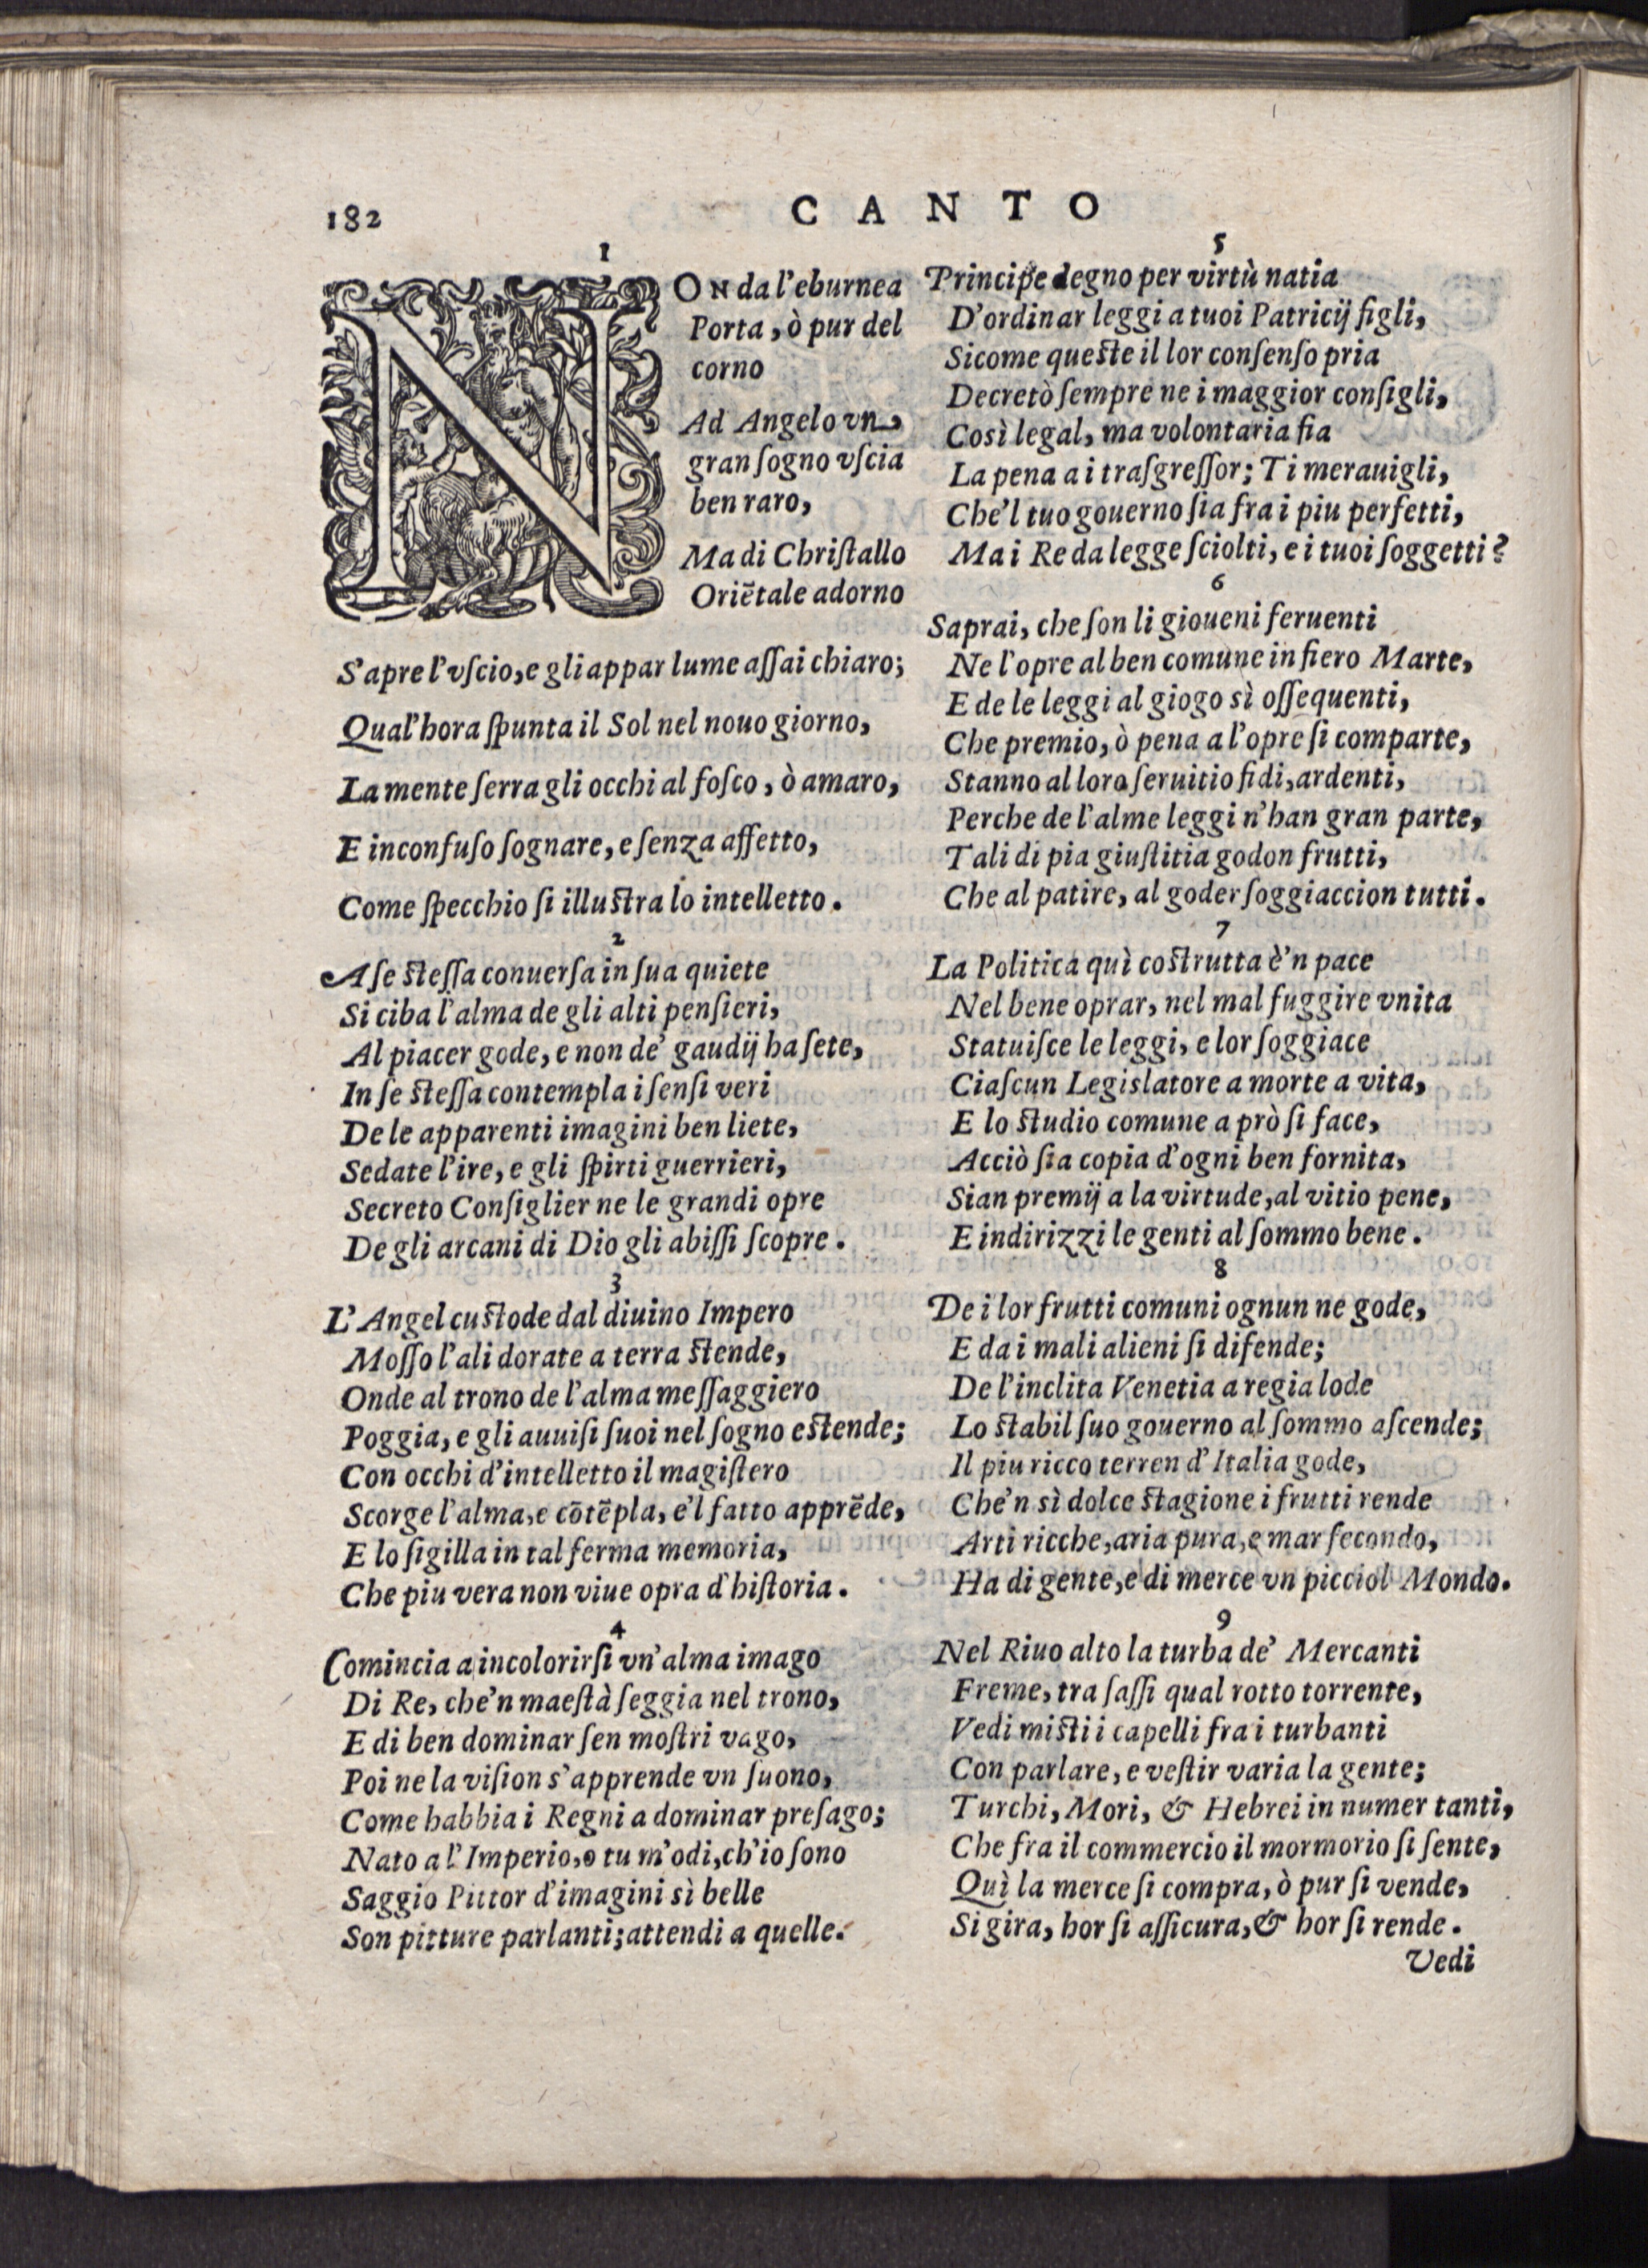 182
CANTO
1
NON da l'eburnea
Porta, ò pur del
corno
Ad Angelo vn
gran ſogno vſcia
ben raro,
Ma di Chriſtallo
Oriẽtale adorno
S'apre l'vſcio, e gli appar lume aſſai chiaro;
Qual'hora ſpunta il Sol nel nouo giorno,
La mente ſerra gli occhi al foſco, ò amaro,
E inconfuſo ſognare, e ſenza affetto,
Come ſpecchio ſi illuſtra lo intelletto.
2
A ſe ſteſſa conuerſa in ſua quiete
Si ciba l'alma de gli alti penſieri,
Al piacer gode, e non de' gaudij ha ſete,
In ſe ſteſſa contempla i ſenſi veri
De le apparenti imagini ben liete,
Sedate l'ire, e gli ſpirti guerrieri,
Secreto Conſiglier ne le grandi opre
De gli arcani di Dio gli abiſſi ſcopre.
3
L'Angel cuſtode dal diuino Impero
Moſſo l'ali dorate a terra ſtende,
Onde al trono de l'alma meſſaggiero
Poggia, e gli auuiſi ſuoi nel ſogno eſtende;
Con occhi d'intelletto il magiſtero
Scorge l'alma, e cõtẽpla, e'l fatto apprẽde,
E lo ſigilla in tal ferma memoria,
Che piu vera non viue opra d'hiſtoria.
4
Comincia a incolorirſi vn'alma imago
Di Re, che'n maeſtà ſeggia nel trono,
E di ben dominar ſen moſtri vago,
Poi ne la viſion s'apprende vn ſuono,
Come habbia i Regni a dominar preſago;
Nato a l'Imperio, o tu m'odi, ch'io ſono
Saggio Pittor d'imagini sì belle
Son pitture parlanti; attendi a quelle.
5
Principe degno per virtù natia
D'ordinar leggi a tuoi Patricij figli,
Sicome queſte il lor conſenſo pria
Decretò ſempre ne i maggior conſigli,
Così legal, ma volontaria fia
La pena a i traſgreſſor; Ti merauigli,
Che'l tuo gouerno ſia fra i piu perfetti,
Ma i Re da legge ſciolti, e i tuoi ſoggetti?
6
Saprai, che ſon li gioueni feruenti
Ne l'opre al ben comune in fiero Marte,
E de le leggi al giogo sì oſſequenti,
Che premio, ò pena a l'opre ſi comparte,
Stanno al loro ſeruitio fidi, ardenti,
Perche de l'alme leggi n'han gran parte,
Tali di pia giuſtitia godon frutti,
Che al patire, al goder ſoggiaccion tutti.
7
La Politica quì coſtrutta è'n pace
Nel bene oprar, nel mal fuggire vnita
Statuiſce le leggi, e lor ſoggiace
Ciaſcun Legislatore a morte a vita,
E lo ſtudio comune a prò ſi face,
Acciò ſia copia d'ogni ben fornita,
Sian premij a la virtude, al vitio pene,
E indirizzi le genti al ſommo bene.
8
De i lor frutti comuni ognun ne gode,
E da i mali alieni ſi difende;
De l'inclita Venetia a regia lode
Lo ſtabil ſuo gouerno al ſommo aſcende;
Il piu ricco terren d'Italia gode,
Che'n sì dolce ſtagione i frutti rende
Arti ricche, aria pura, e mar fecondo,
Ha di gente, e di merce vn picciol Mondo.
9
Nel Riuo alto la turba de' Mercanti
Freme, tra ſaſſi qual rotto torrente,
Vedi miſti i capelli fra i turbanti
Con parlare, e veſtir varia la gente;
Turchi, Mori, & Hebrei in numer tanti,
Che fra il commercio il mormorio ſi ſente,
Quì la merce ſi compra, ò pur ſi vende,
Si gira, hor ſi aſſicura, & hor ſi rende.
Vedi